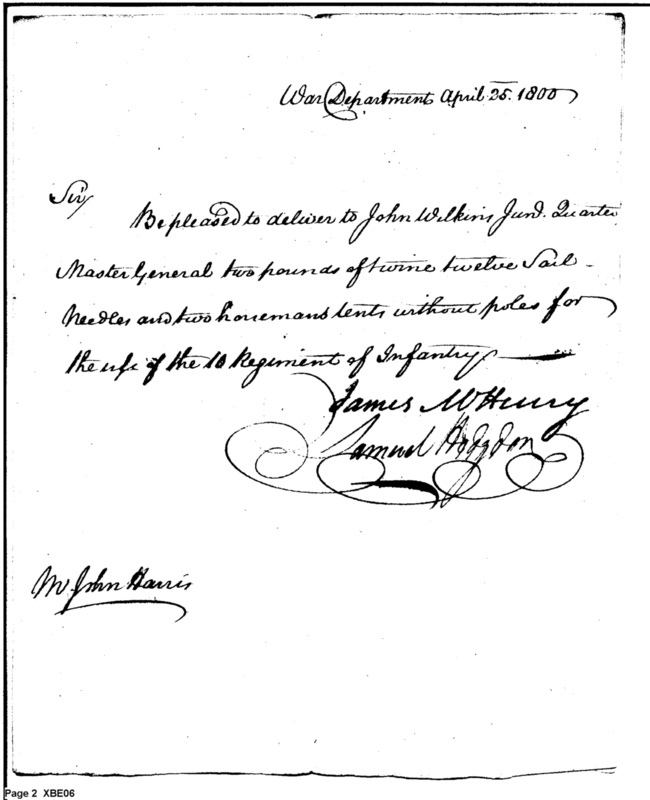 War Department April 25. 1800
Sir
Be pleased to deliver to John Wilkins Junr. Quarter
Master General two pounds of twine twelve Sail
Needles and two horsemans tents without poles for
the use of the 10 Regiment of Infantry
James McHenry
Samuel Hodgdon
Mr John Harris
Page 2 XBE06